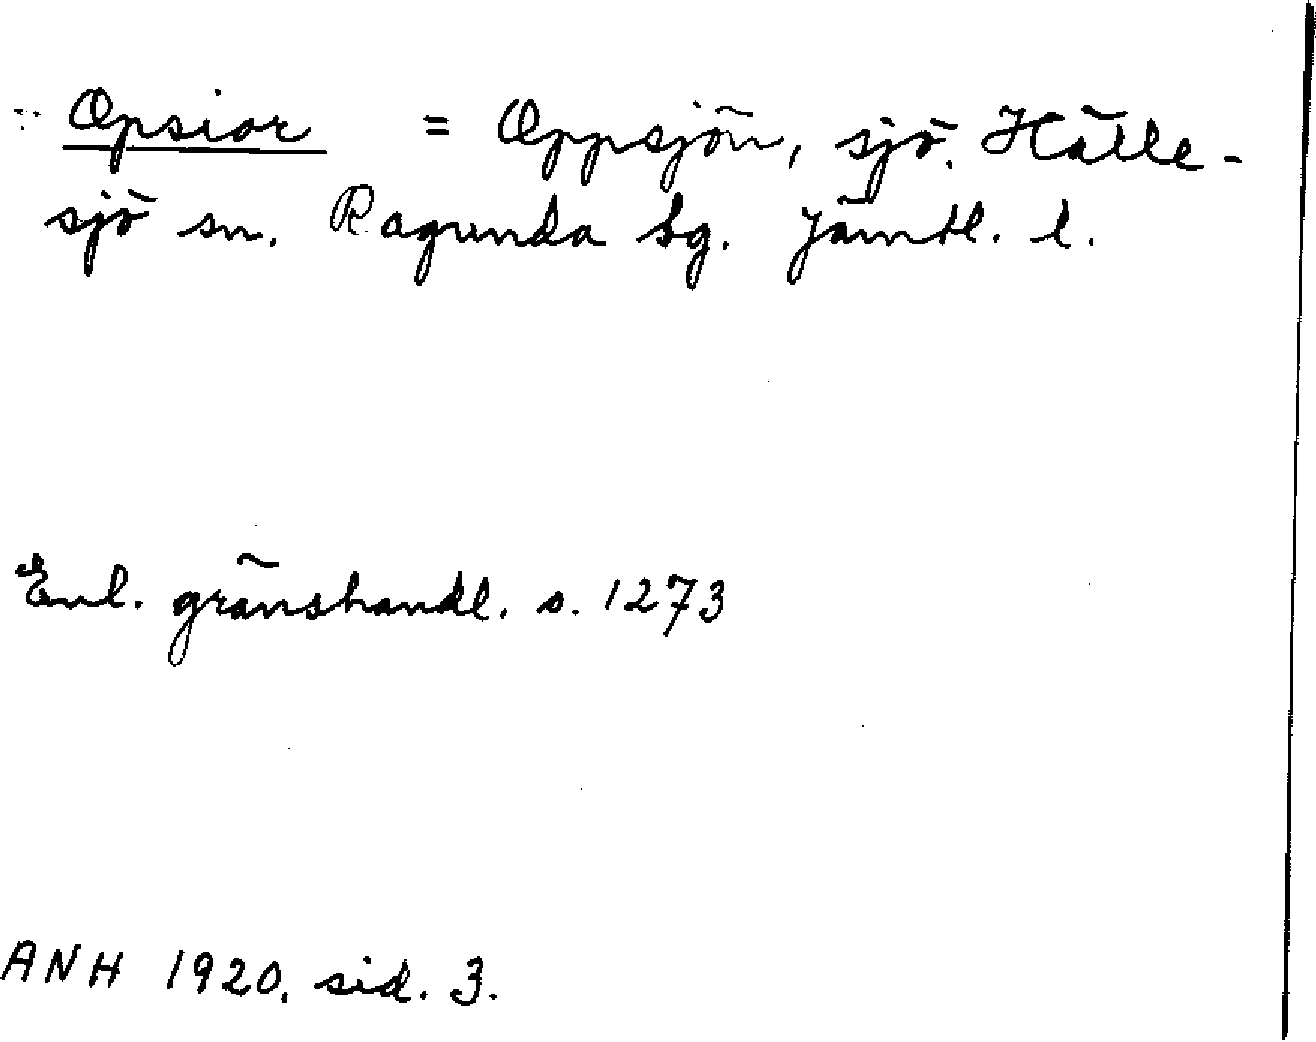 Opsior = Oppsjön, sjö. Hälle-
sjö sn. Ragunda tg. Jämtl. l.
Enl. gränshandl. s. 1273
ANH 1920. sid. 3.